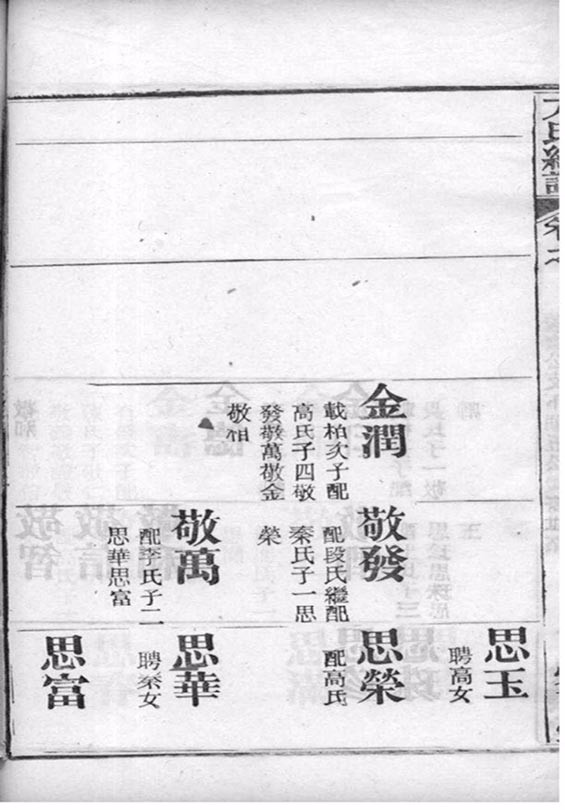 氏總譜
卷之
金潤
載柏次子配
高氏子四敬
發敬萬敬金
敬相
敬發
配段氏繼配
秦氏子一思
榮
敬萬
配李氏子二
思華思富
思玉
聘高女
思榮
配高氏
思華
聘秦女
思富